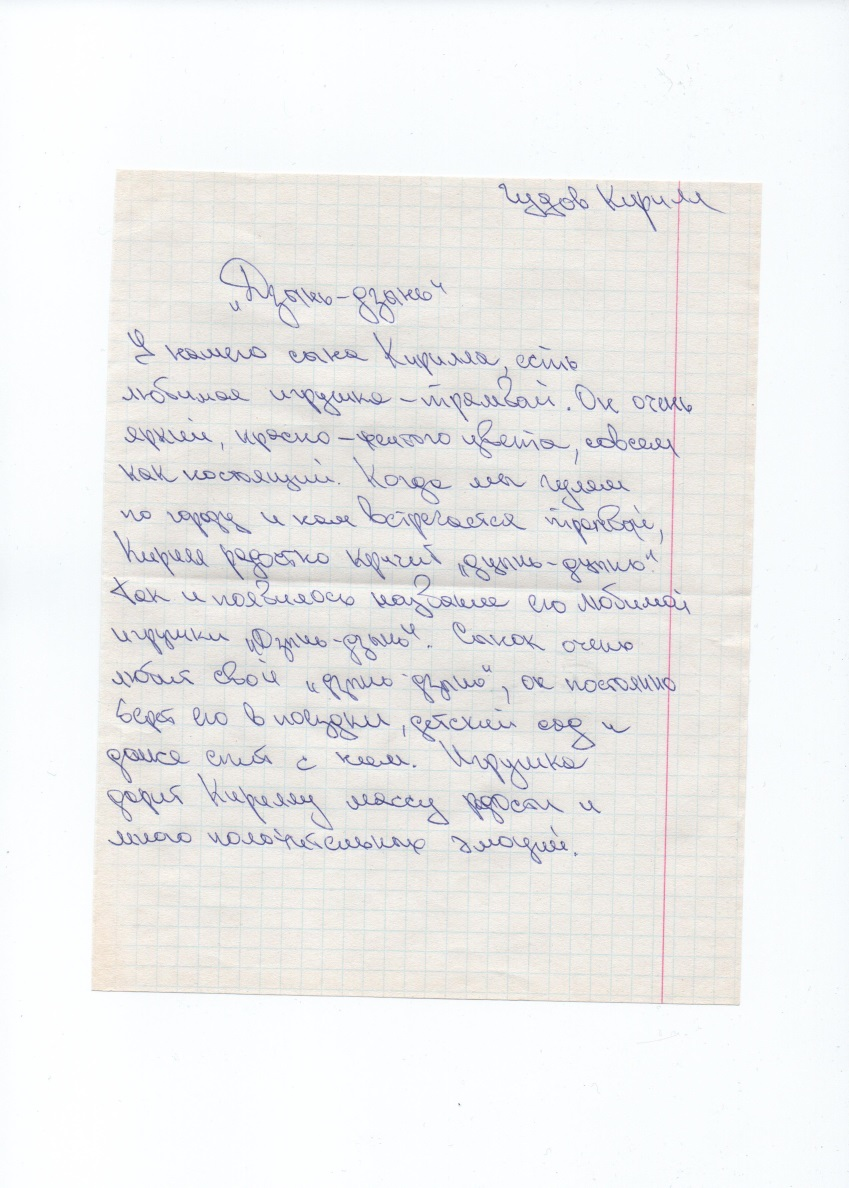 Чудов Кирилл
„Дзынь-дзынь"
У нашего сына Кирилла, есть
любимая игрушка – трамвай. Он очень
яркий, красно – желтого цвета, совсем
как настоящий. Когда мы гуляем
по городу и нам встречается трамвай,
Кирилл радостно кричит „дзынь-дзынь".
Так и появилось название его любимой
игрушки „Дзынь-дзынь". Сынок очень
любит свой „дзынь-дзынь", он постоянно
берет его в поездки, детский сад и
даже спит с ним. Игрушка
дарит Кириллу массу радости и
много положительных эмоций.